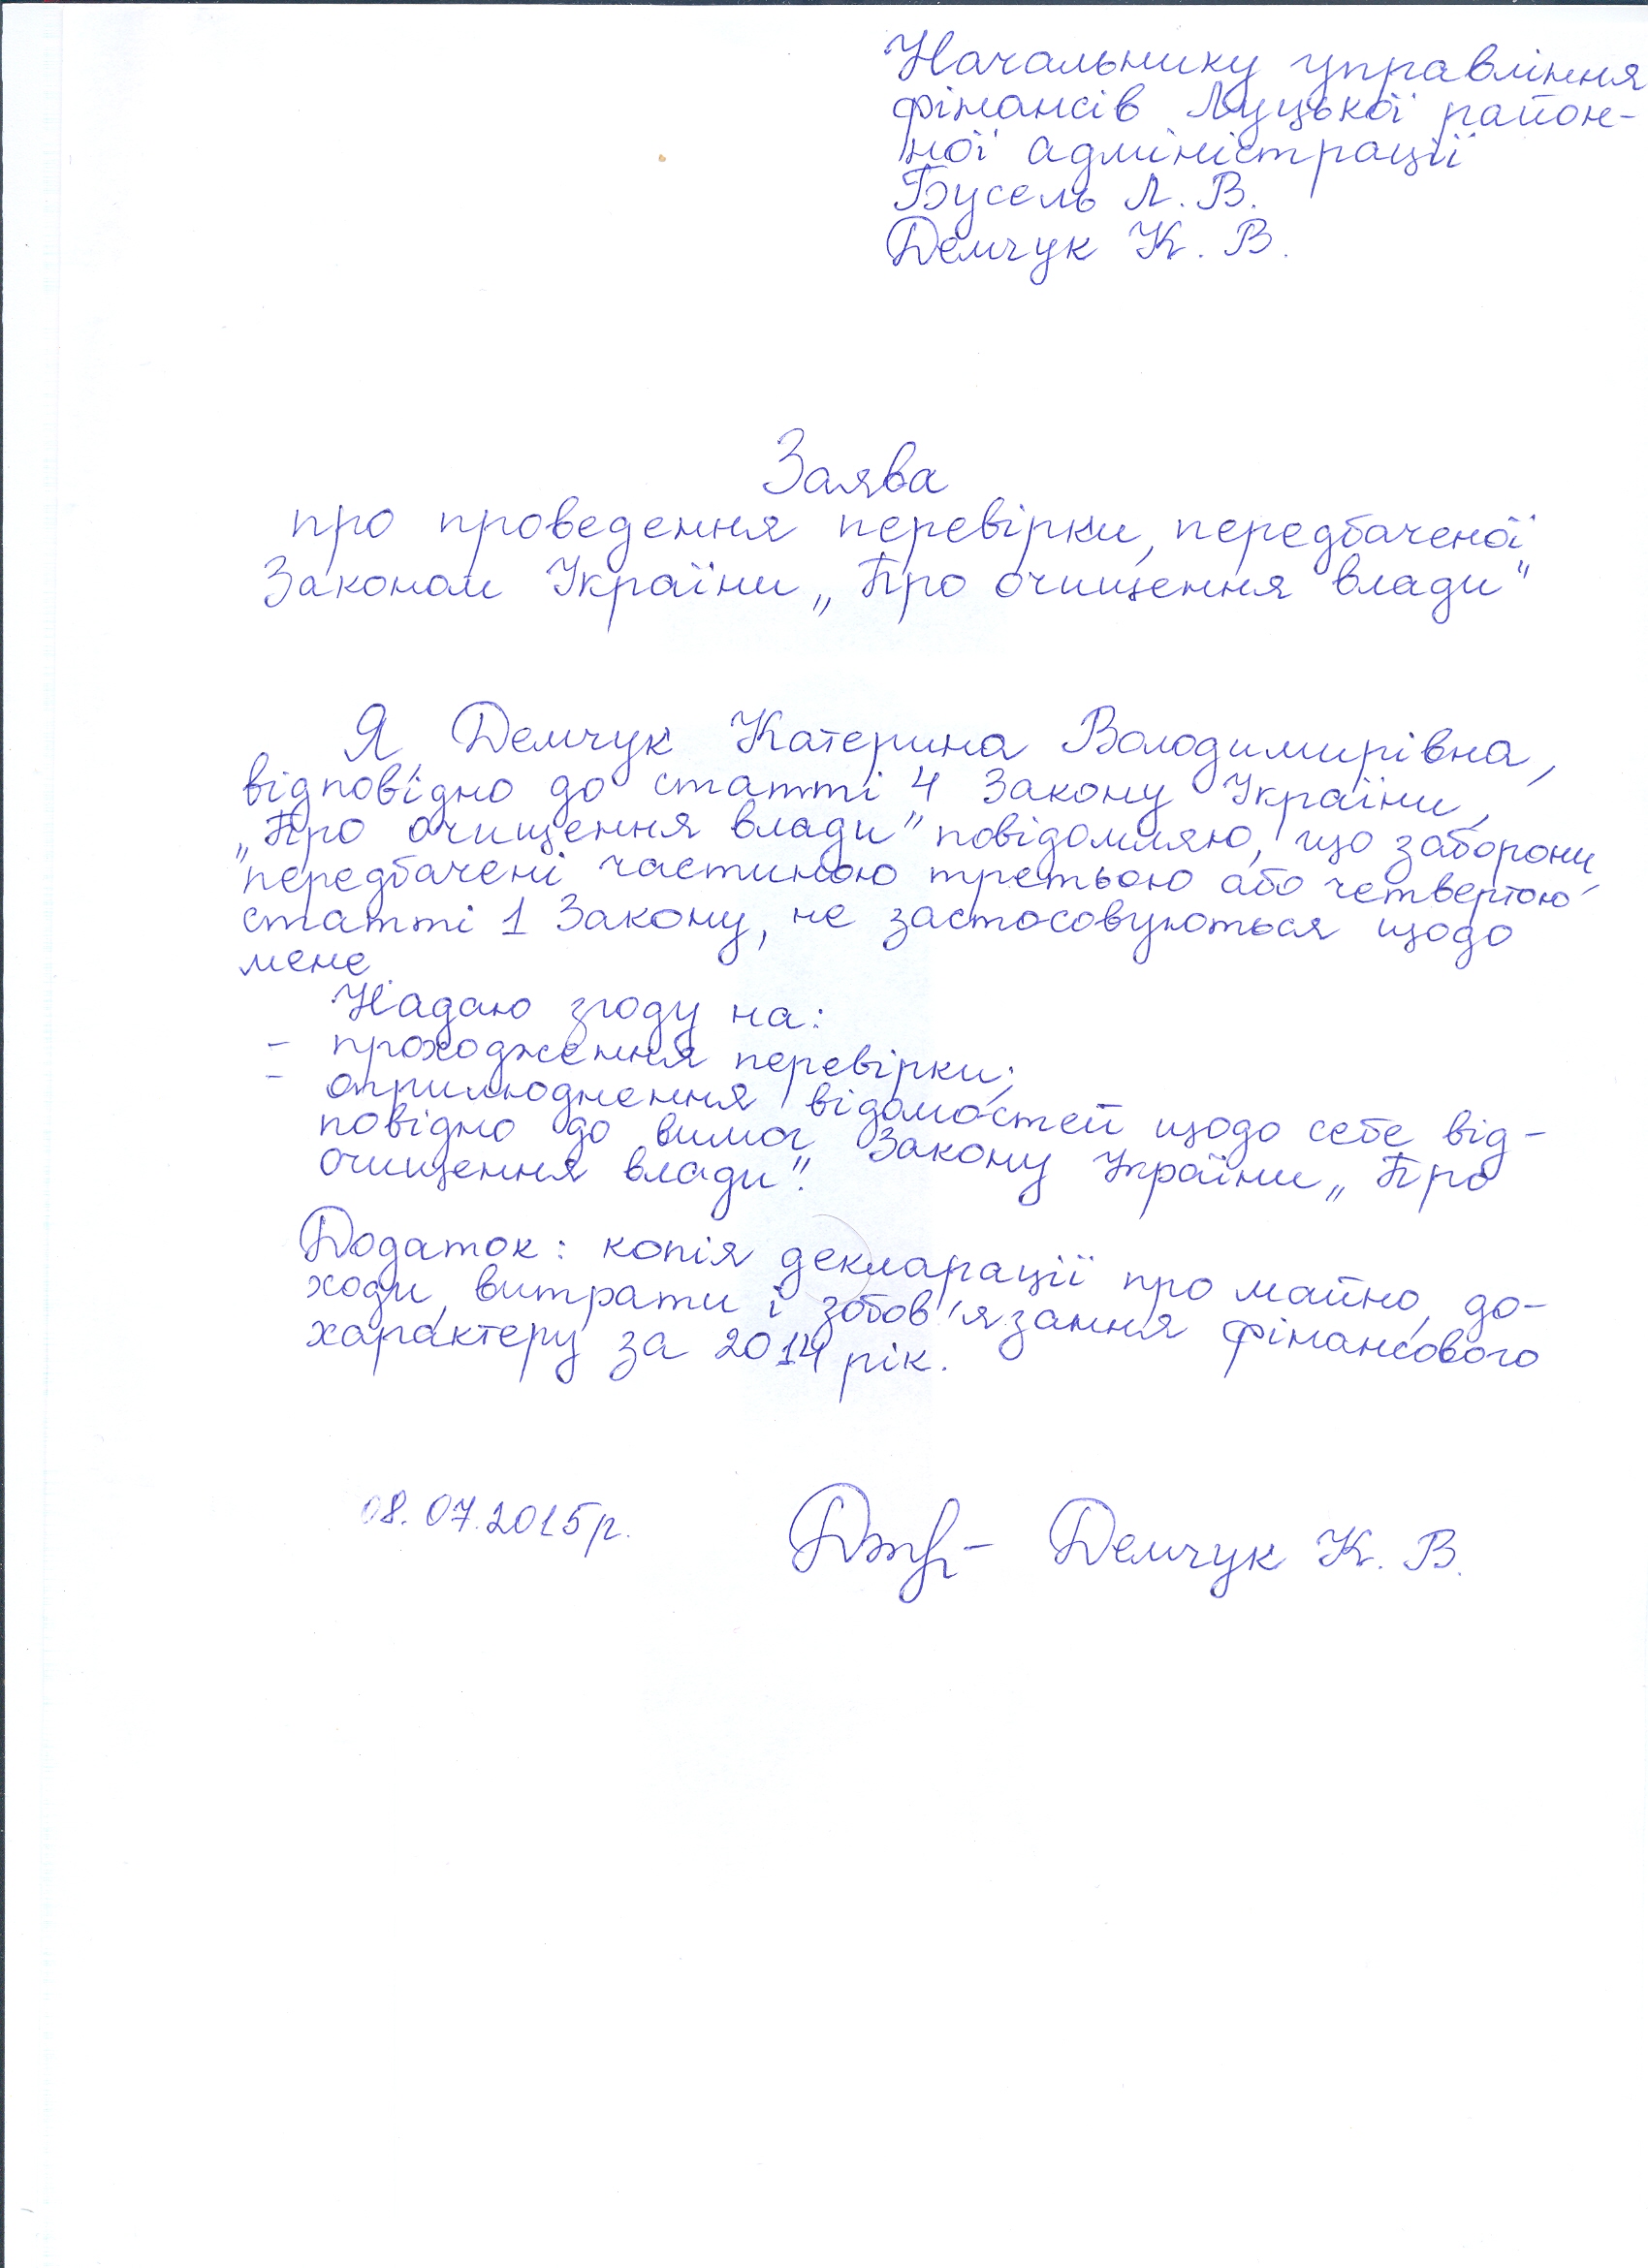 Начальнику управління
фінансів Луцької район-
ної адміністрації
Бусель Л. В.
Демчук К. В.
Заява
про проведення перевірки, передбаченої
Законом України „Про очищення влади"
Я, Демчук Катерина Володимирівна,
відповідно до статті 4 Закону України
„Про очищення влади" повідомляю, що заборони,
передбачені частиною третьою або четвертою
статті 1 Закону, не застосовуються щодо
мене
Надаю згоду на:
- проходження перевірки;
- оприлюднення відомостей щодо себе від-
повідно до вимог Закону України „Про
очищення влади".
Додаток: копія декларації про майно, до-
ходи, витрати і зобов'язання фінансового
характеру за 2014 рік.
08.07.2015р. Демчук К. В.